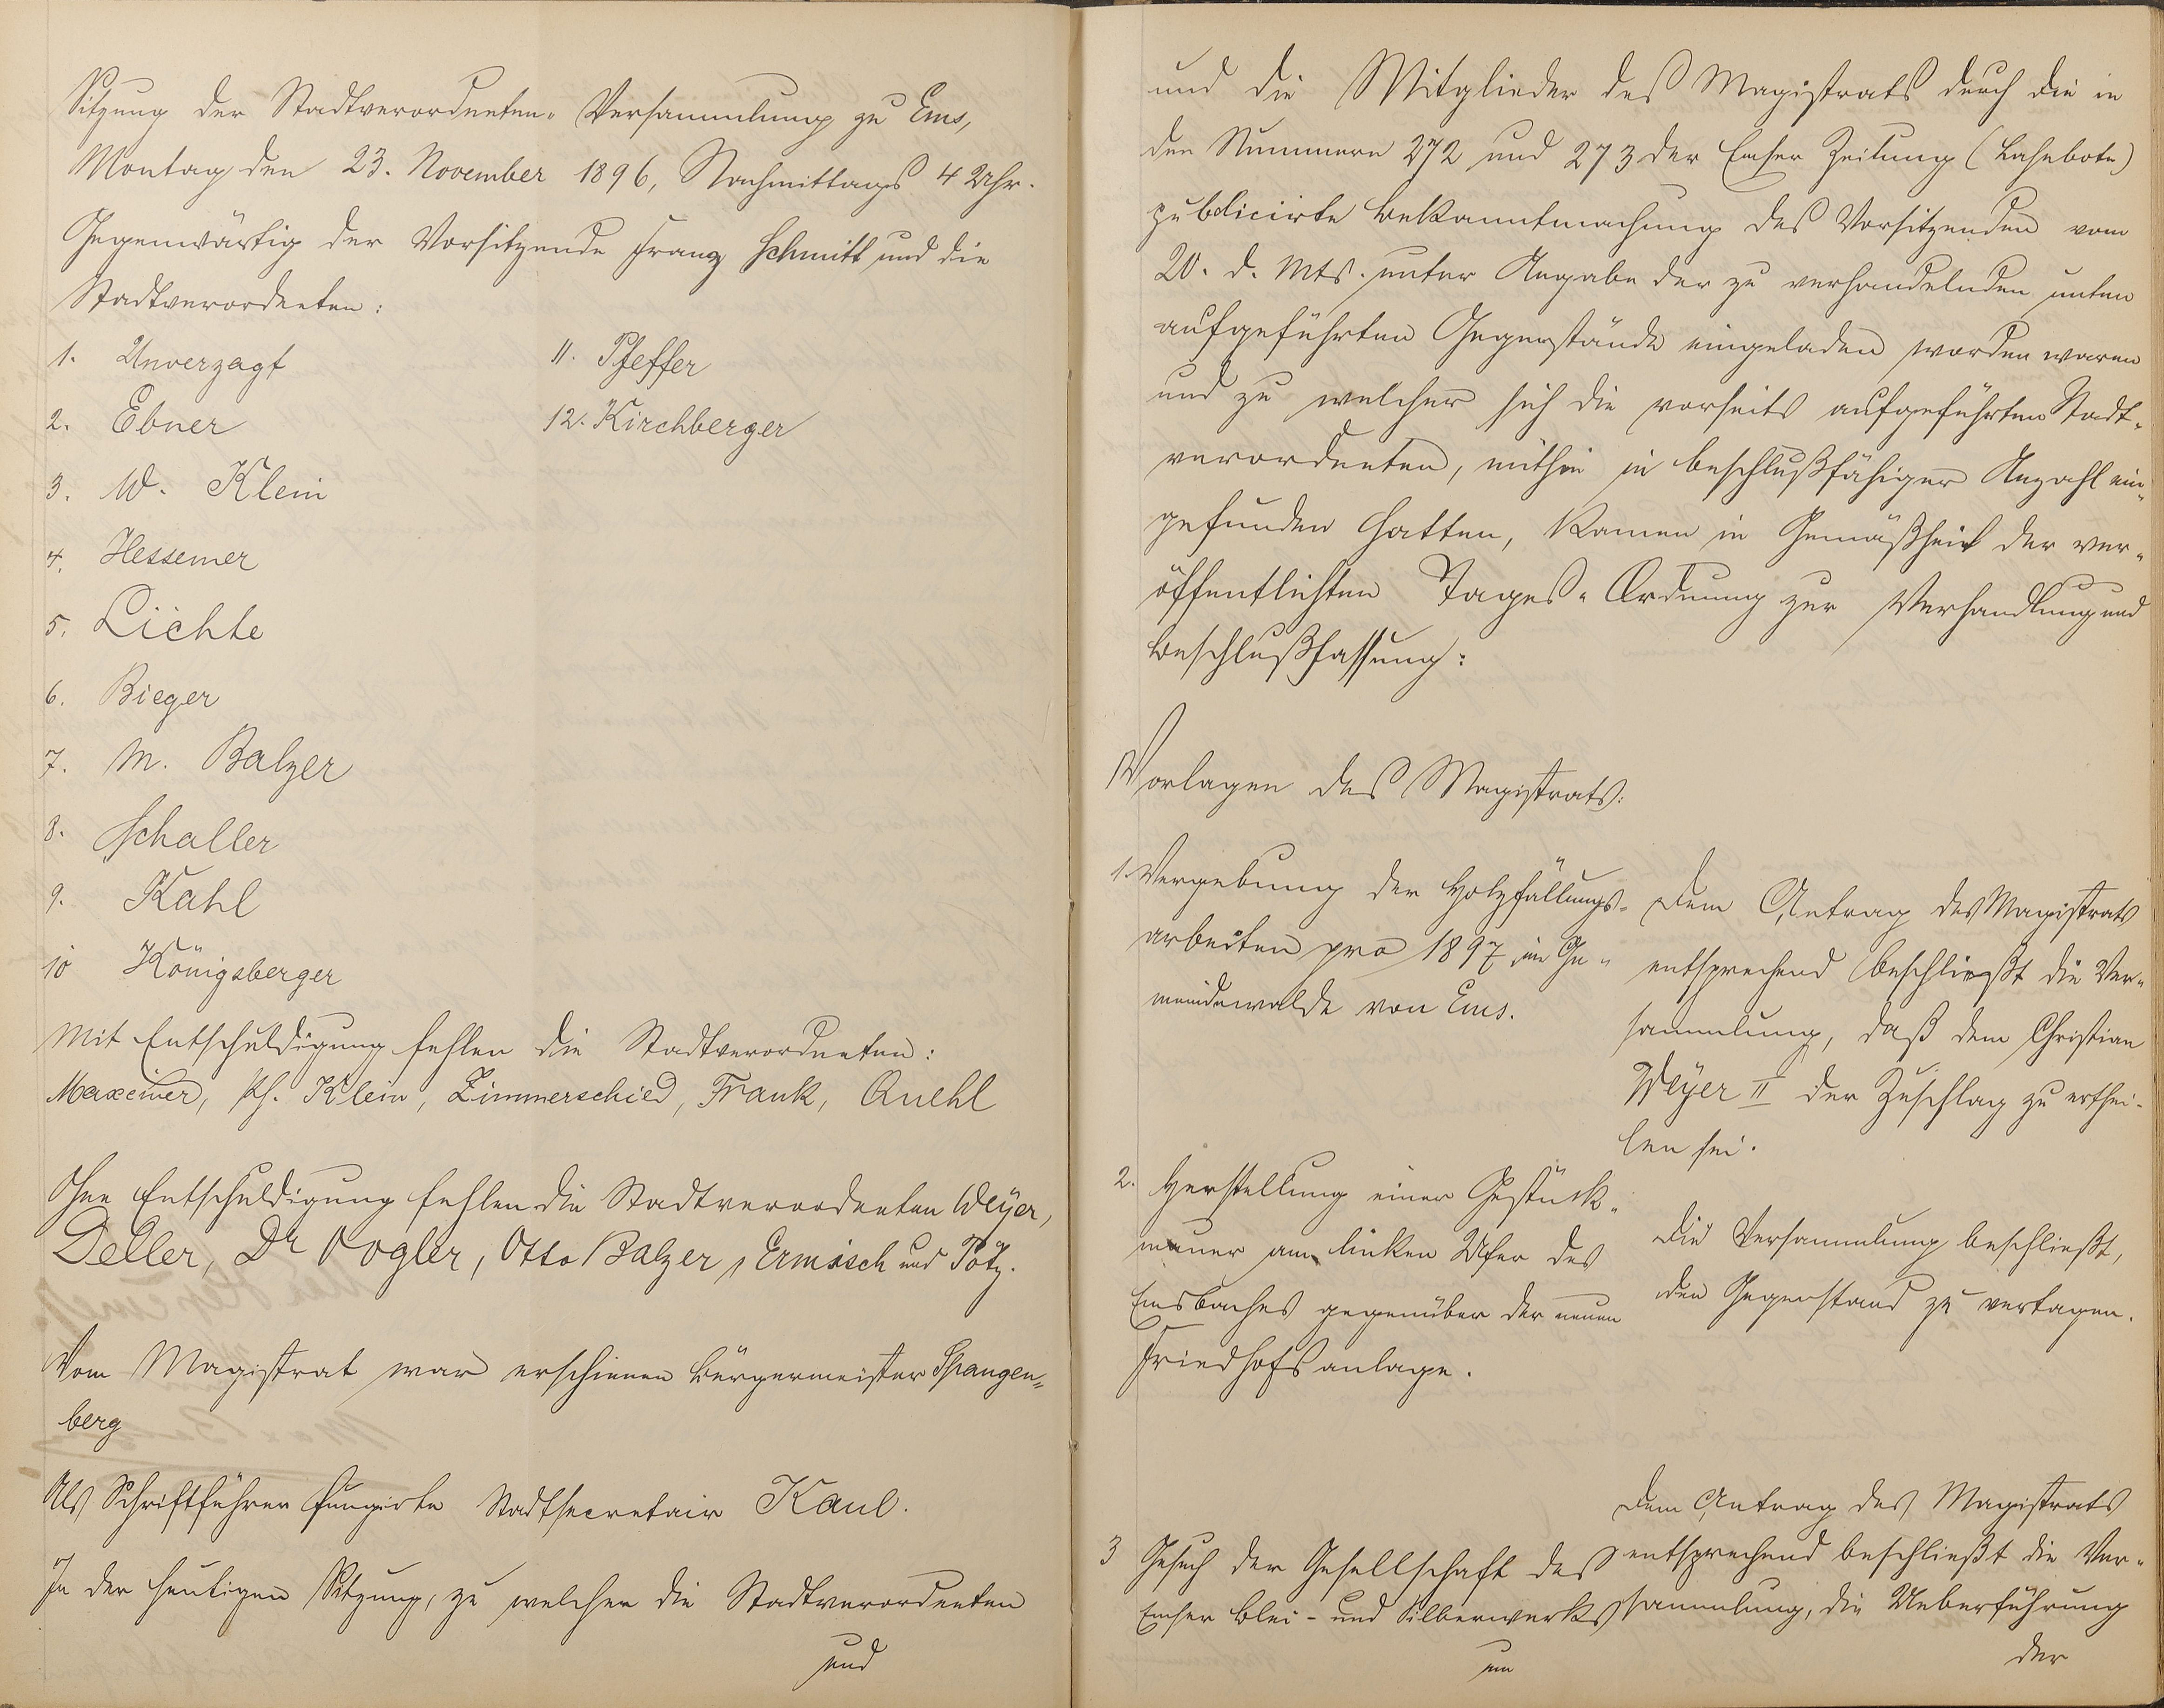 Sitzung der Stadtverordneten-Versammlung zu Ems,
Montag den 23. November 1896, Nachmittags 4 Uhr.
Gegenwärtig der Vorsitzende Franz Schmitt und die
Stadtverordneten:
1. Unverzagt
2. Ebner
3. W. Klein
4. Hessemer
5. Lichte
6. Bieger
7. M. Balzer
8. Schaller
9. Kahl
10 Königsberger
11. Pfeffer
12. Kirchberger
Mit Entschuldigung fehlen die Stadtverordneten:
Maxeiner, Ph. Klein, Zimmerschied, Frank, Quehl
Ohne Entschuldigung fehlen die Stadtverordneten Weyer,
Deller, Dr Vogler, Otto Balzer, Ermisch und Pötz.
Vom Magistrat war erschienen Bürgermeister Spangen-
berg
Als Schriftführer fungirte Stadtsecretair Kaul.
In der heutigen Sitzung, zu welcher die Stadtverordneten
und
und die Mitglieder des Magistrats durch die in
den Nummern 272 und 273 der Emser Zeitung (Lahnbote)
publicirte Bekanntmachung des Vorsitzenden vom
20. d. Mts. unter Angabe der zu verhandelnden unten
aufgeführten Gegenstände eingeladen worden waren
und zu welcher sich die vorseits aufgeführten Stadt-
verordneten, mithin in beschlußfähiger Anzahl ein-
gefunden hatten, kamen in Gemäßheit der ver-
öffentlichten Tages-Ordnung zur Verhandlung und
Beschlußfassung:
Vorlagen des Magistrats:
1. Vergebung der Holzfällungs-
arbeiten pro 1897 im Ge-
meindewalde von Ems.
Dem Antrag des Magistrats
entsprechend beschließt die Ver-
sammlung, daß dem Christian
Weyer II der Zuschlag zu erthei-
len sei.
2. Herstellung einer Gestück-
mauer am linken Ufer des
Emsbaches gegenüber der neuen
Friedhofsanlage.
Die Versammlung beschließt,
den Gegenstand zu vertagen.
3 Gesuch der Gesellschaft des
Emser Blei- und Silberwerks
um
Dem Antrag des Magistrats
entsprechend beschließt die Ver-
sammlung, die Ueberführung
der